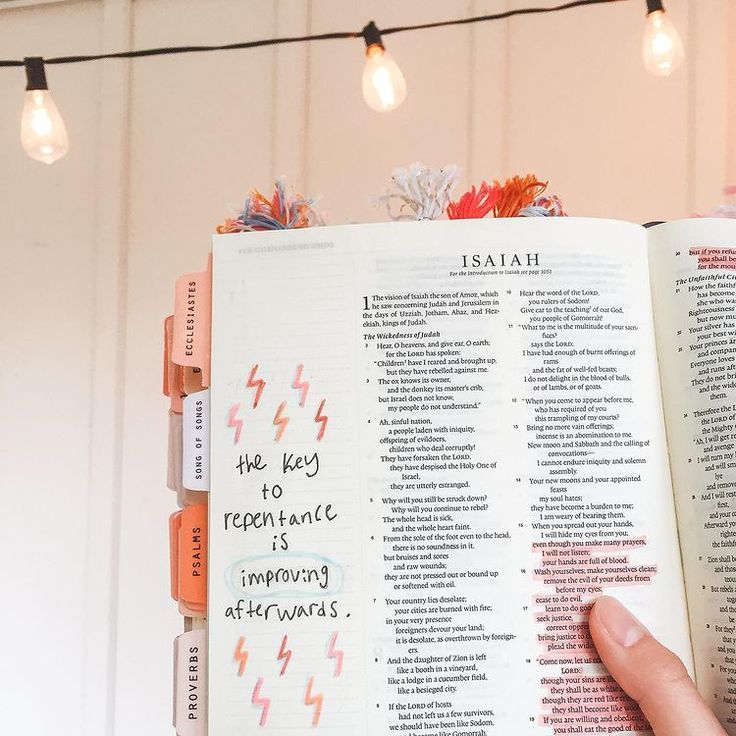 ECCLESIASTES
SONG OF SONGS
PSALMS
PROVERBS
the key
to
repentance
is
improving
afterwards.
ISAIAH
For the Introduction to Isaiah see page 1051
1 The vision of Isaiah the son of Amoz, which
he saw concerning Judah and Jerusalem in
the days of Uzziah, Jotham, Ahaz, and Hez-
ekiah, kings of Judah.
The Wickedness of Judah
2 Hear, O heavens, and give ear, O earth;
for the LORD has spoken:
"Children have I reared and brought up,
but they have rebelled against me.
3 The ox knows its owner,
and the donkey its master's crib,
but Israel does not know,
my people do not understand."
4 Ah, sinful nation,
a people laden with iniquity,
offspring of evildoers,
children who deal corruptly!
They have forsaken the LORD,
they have despised the Holy One of
Israel,
they are utterly estranged.
5 Why will you still be struck down?
Why will you continue to rebel?
The whole head is sick,
and the whole heart faint.
6 From the sole of the foot even to the head,
there is no soundness in it,
but bruises and sores
and raw wounds;
they are not pressed out or bound up
or softened with oil.
7 Your country lies desolate;
your cities are burned with fire;
in your very presence
foreigners devour your land;
it is desolate, as overthrown by foreign-
ers.
8 And the daughter of Zion is left
like a booth in a vineyard,
like a lodge in a cucumber field,
like a besieged city.
9 If the LORD of hosts
had not left us a few survivors,
we should have been like Sodom,
and become like Gomorrah.
10 Hear the word of the LORD,
you rulers of Sodom!
Give ear to the teaching of our God,
you people of Gomorrah!
11 "What to me is the multitude of your sacri-
fices?
says the LORD;
I have had enough of burnt offerings of
rams
and the fat of well-fed beasts;
I do not delight in the blood of bulls,
or of lambs, or of goats.
12 "When you come to appear before me,
who has required of you
this trampling of my courts?
13 Bring no more vain offerings;
incense is an abomination to me.
New moon and Sabbath and the calling of
convocations—
I cannot endure iniquity and solemn
assembly.
14 Your new moons and your appointed
feasts
my soul hates;
they have become a burden to me;
I am weary of bearing them.
15 When you spread out your hands,
I will hide my eyes from you;
even though you make many prayers,
I will not listen;
your hands are full of blood.
16 Wash yourselves; make yourselves clean;
remove the evil of your deeds from
before my eyes;
cease to do evil,
17 learn to do
seek justice,
correct
bring justice to
plead the
18 "Come now, let us
LORD:
though your sins are
they shall be as
though they are red like
they shall become like
19 If you are willing and
you shall eat the good of the
20 but if you
you shall be
for the
The Unfaithful
21 How the
has become
she who
Righteousness
but now
22 Your silver has
your best
23 Your princes
and
Everyone loves
and runs
They do not
and the
them.
24 Therefore the
the LORD of
the Mighty